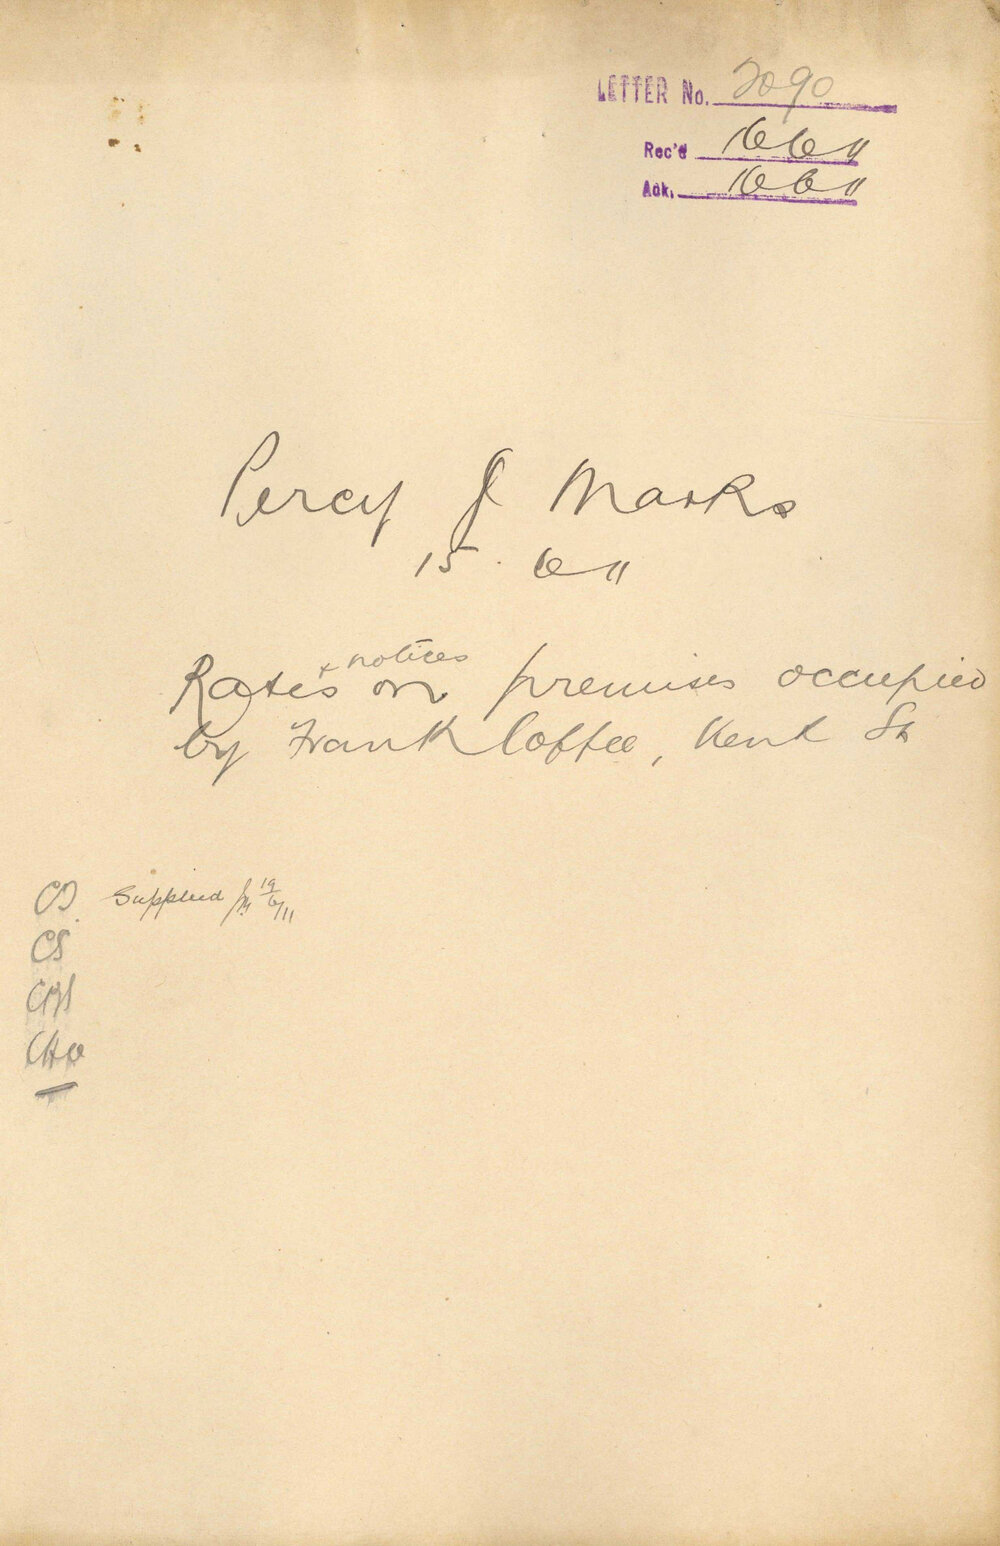 LETTER No. 2090
Rec'd 16 6 11
Ack. 16 6 11
Percy J Marks
15. 6 11
+ notices
Rates on premises occupied
by Frank Coffee, Kent St
CS Supplied 19/6/11
CS
CBI
CHO